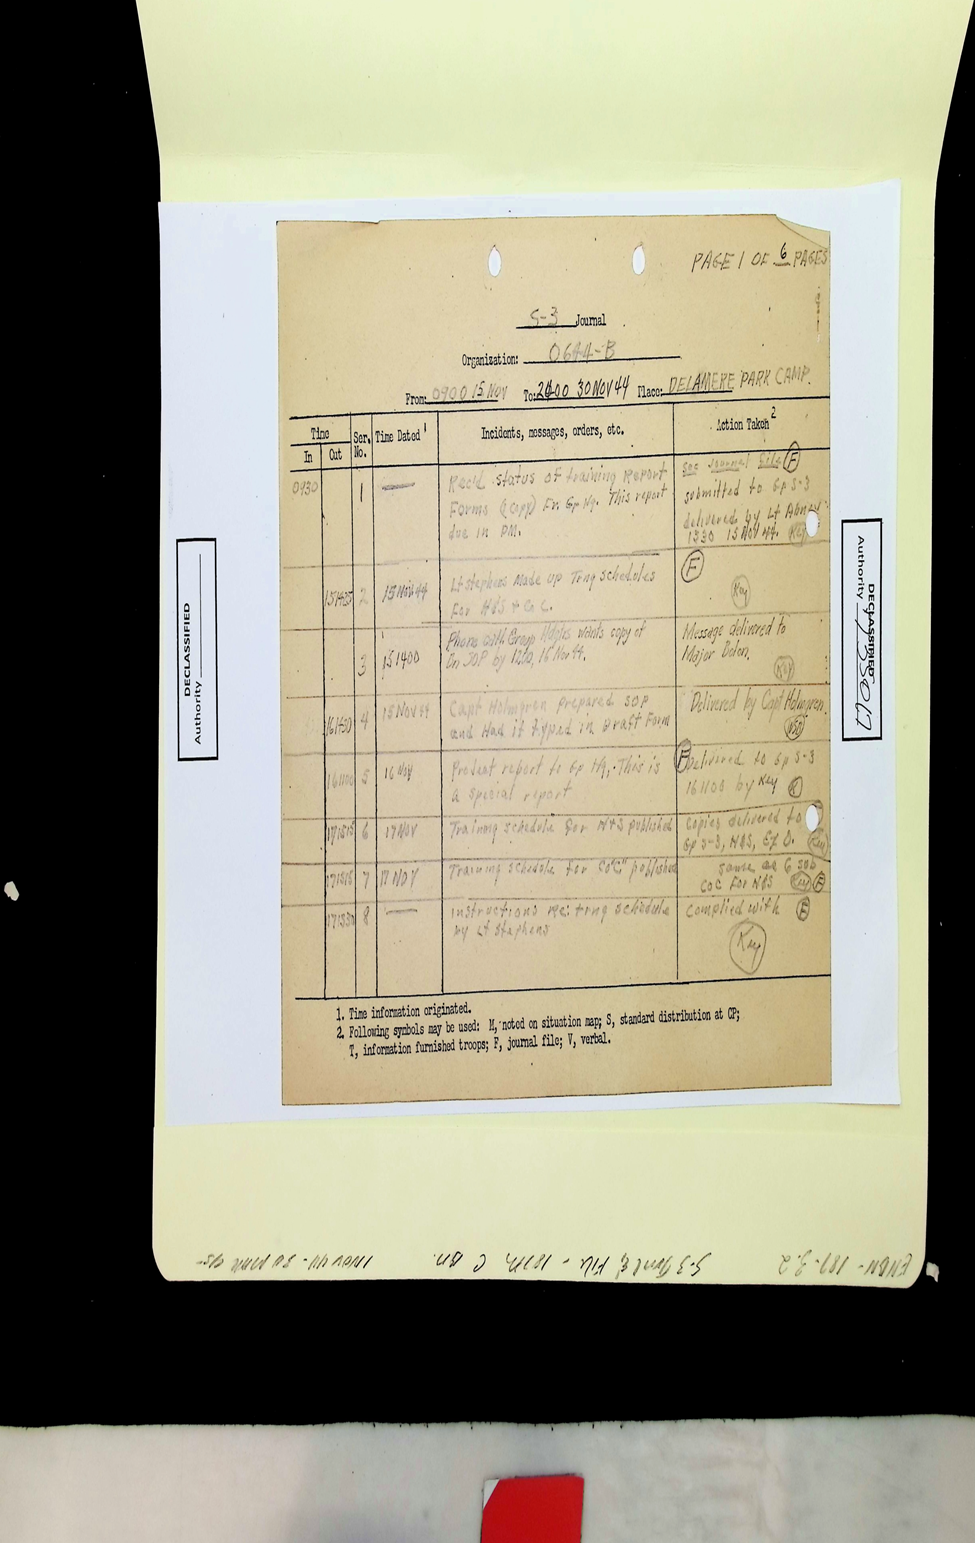 PAGE 1 OF 6 PAGES
S-3 Journal
Organization: 0644-B
From: 0900 15 Nov To: 2400 30 NOV 44 Place: DELAMERE PARK CAMP.
Time
In Out
Ser. No.
Time Dated 1
Incidents, messages, orders, etc.
Action Taken 2
0930
1
Recd status of training Report
Forms (1 copy) Fm Gp Hq. This report
due in PM.
See Journal File F
submitted to Gp S-3
delivered by Lt
1330 15 Nov 44. Key
151425
2
15 Nov 44
Lt Stephens Made up Trng schedules
For H&S & Co C.
F
Key
3
151400
Phone call Group Hdqtrs wants copy of
Bn SOP by 1200, 16 Nov 44.
Message delivered to
Major Dolan.
Key
4
15 Nov 44
Capt Holmgren prepared SOP
and Had it typed in Draft Form
Delivered by Capt Holmgren.
161100
5
16 Nov
report to Gp Hq. This is
a special report
F Delivered to Gp S-3
161100 by Key K
171515
6
17 NOV
Training schedule for H&S published
Copies delivered to
Gp S-3, H&S, Ex O. Key
171515
7
17 NOV
Training schedule for Co "C" published
same as 6 sub
Co C For H&S Key F
171530
8
Instructions re: trng schedule
by Lt Stephens
Complied with F
Key
1. Time information originated.
2. Following symbols may be used: M, noted on situation map; S, standard distribution at CP;
T, information furnished troops; F, journal file; V, verbal.
DECLASSIFIED
Authority
DECLASSIFIED
Authority 735017
ENBN - 187-3.2
S-3 Jnl & File - 187th C Bn.
1 NOV 44 - 30 MAR 45